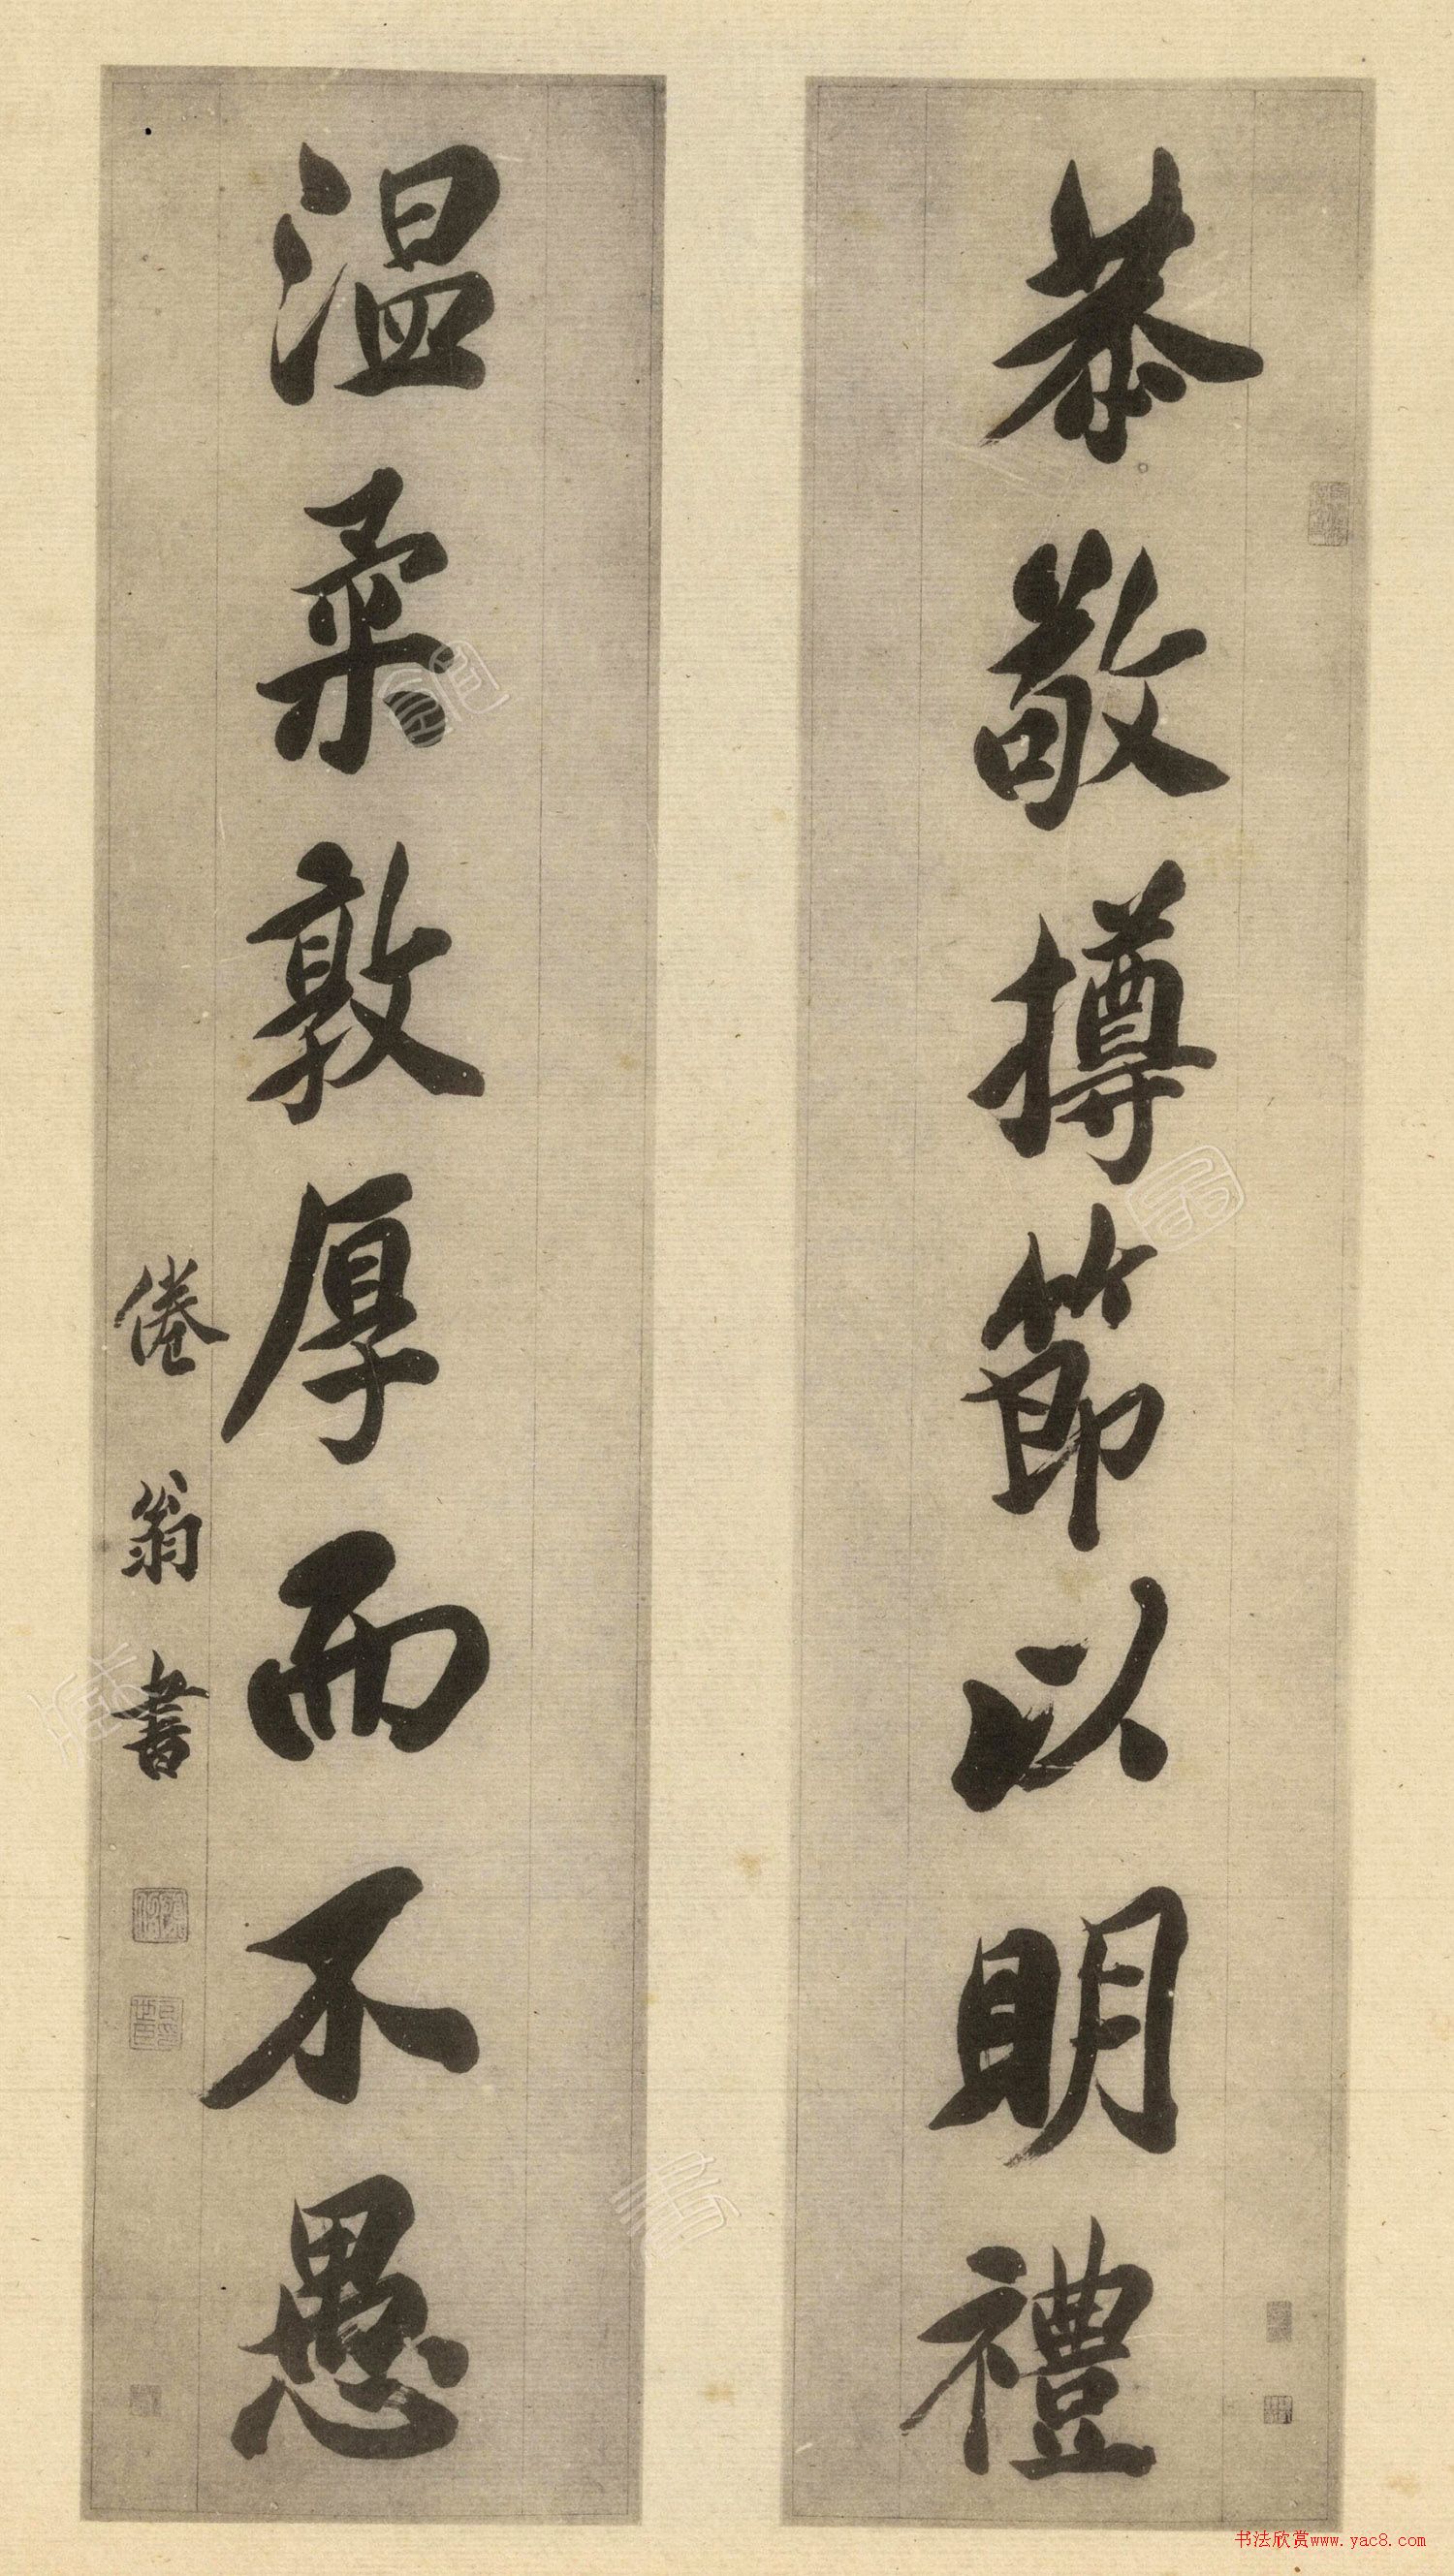 恭敬撙節以明禮
温柔敦厚而不愚
倦翁書
书法欣赏www.yac8.com